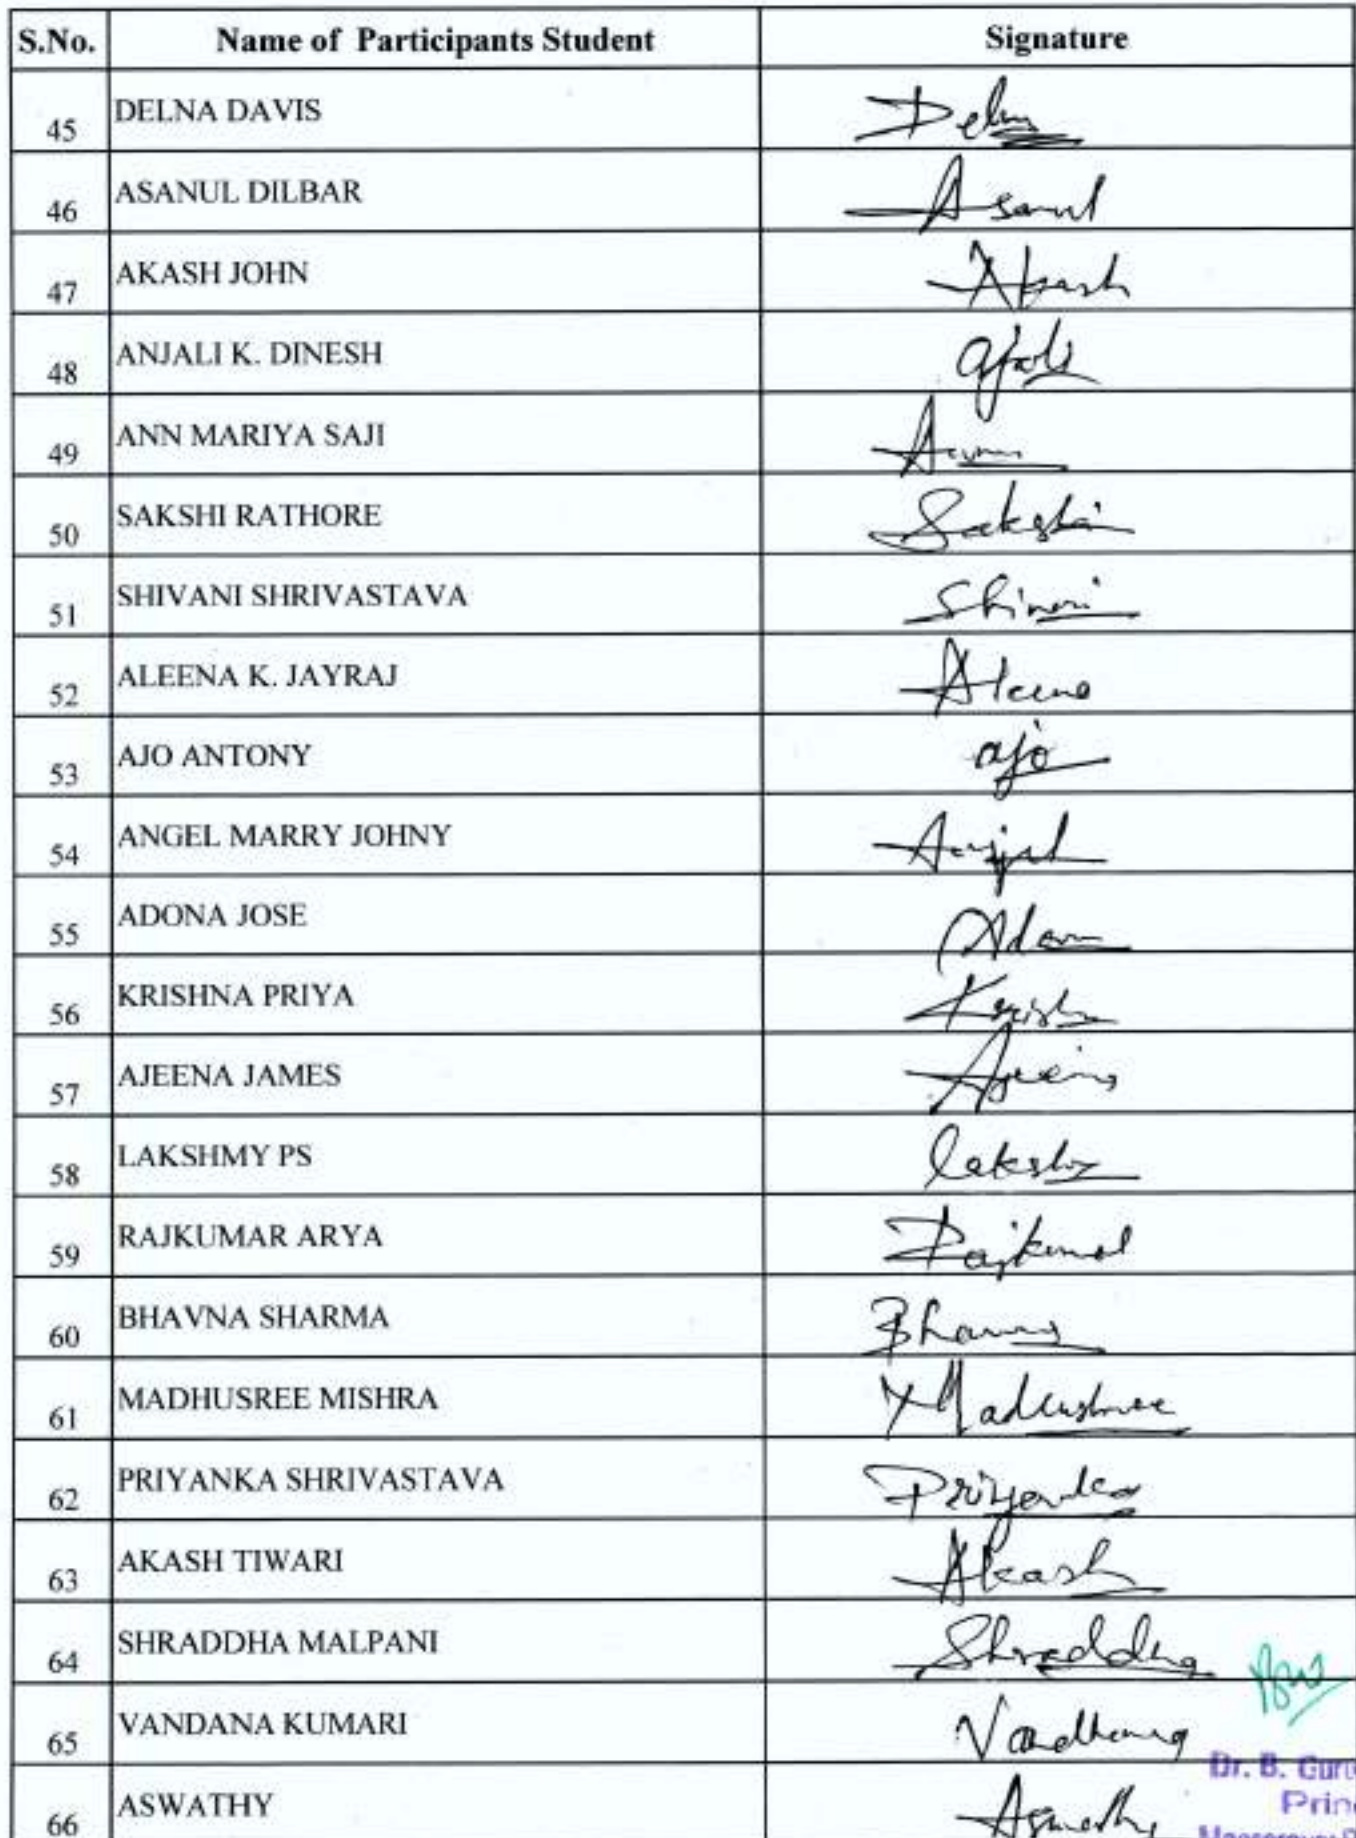 S.No. Name of Participants Student Signature
45 DELNA DAVIS Delna
46 ASANUL DILBAR Asanul
47 AKASH JOHN Akash
48 ANJALI K. DINESH
49 ANN MARIYA SAJI
50 SAKSHI RATHORE Sakshi
51 SHIVANI SHRIVASTAVA Shivani
52 ALEENA K. JAYRAJ Aleena
53 AJO ANTONY ajo
54 ANGEL MARRY JOHNY
55 ADONA JOSE
56 KRISHNA PRIYA Krishna
57 AJEENA JAMES Ajeena
58 LAKSHMY PS
59 RAJKUMAR ARYA Rajkumar
60 BHAVNA SHARMA Bhavna
61 MADHUSREE MISHRA Madhushree
62 PRIYANKA SHRIVASTAVA Priyanka
63 AKASH TIWARI Akash
64 SHRADDHA MALPANI Shraddha
65 VANDANA KUMARI Vandhana
Dr. B.
66 ASWATHY